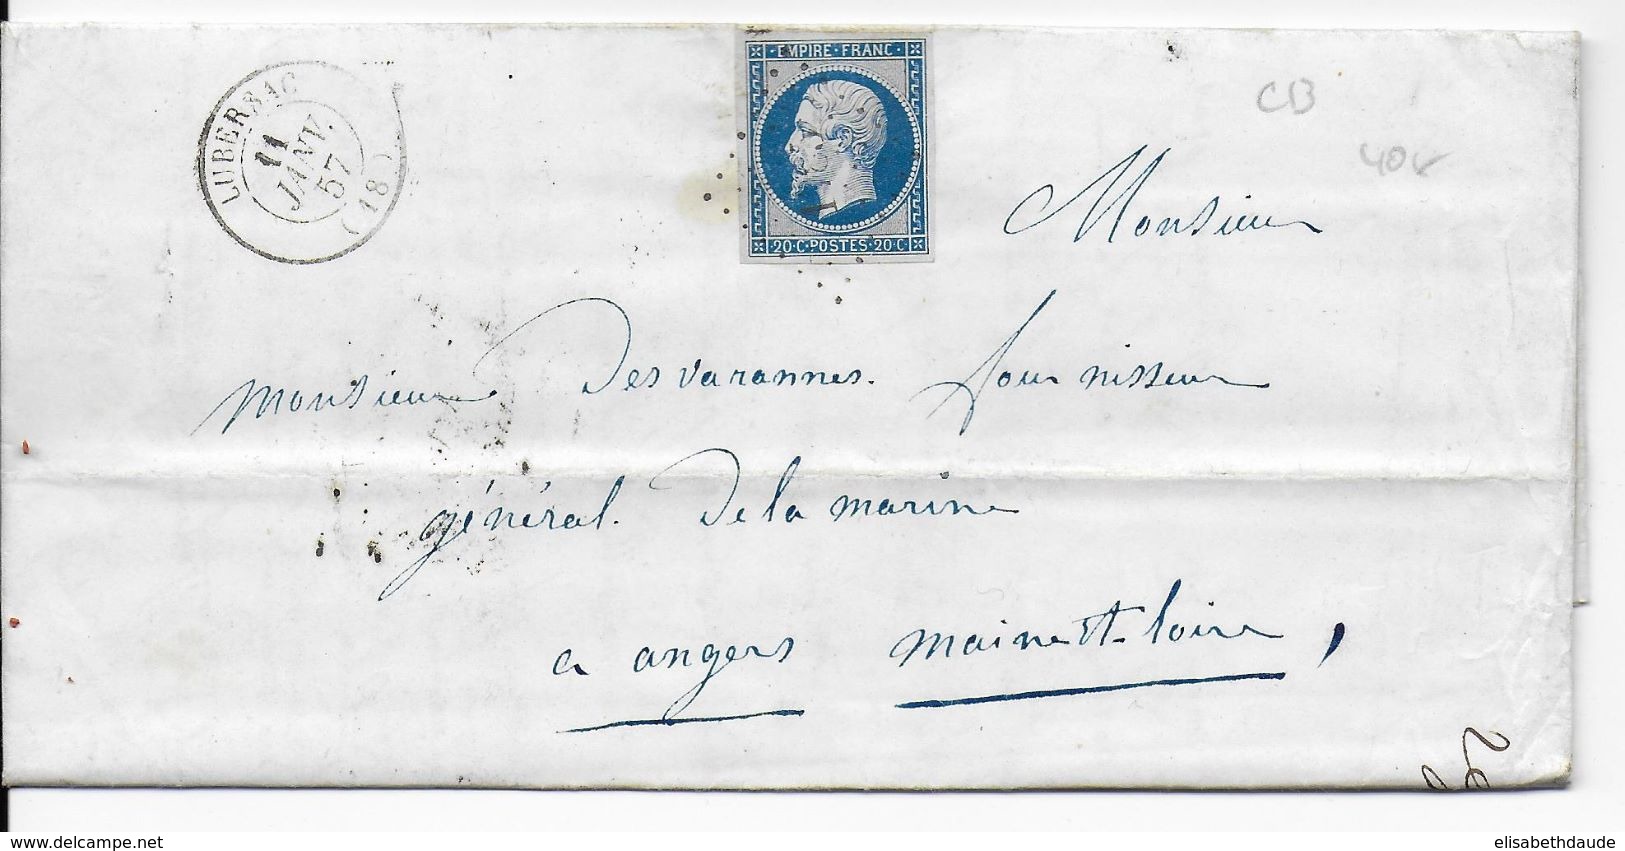 LUBERSAC
11
JANV.
57
(18)
EMPIRE · FRANC ·
20 · C · POSTES · 20 · C
CB
40€
Monsieur
monsieur Desvarannes. fournisseur
général. De la marine
a angers maine et loire,
elisabethdaude
www.delcampe.net